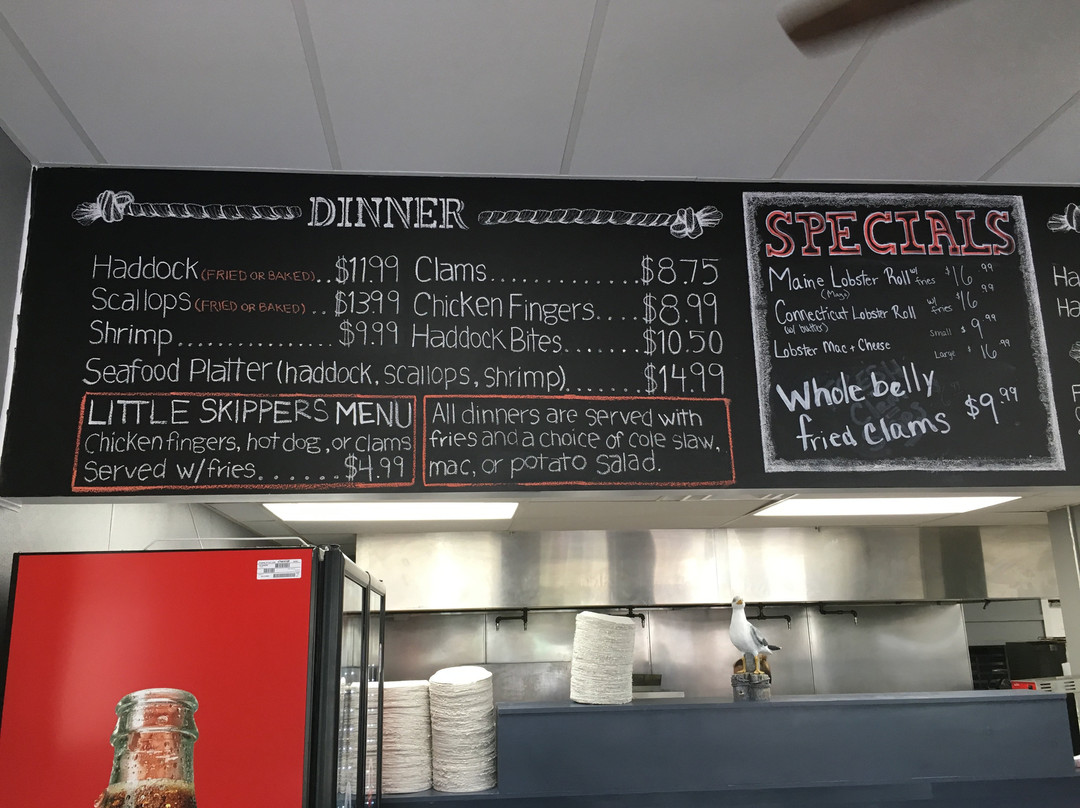 DINNER
Haddock (FRIED OR BAKED)..$11.99
Scallops (FRIED OR BAKED)..$13.99
Shrimp...............$9.99
Clams..............$8.75
Chicken Fingers.....$8.99
Haddock Bites.......$10.50
Seafood Platter (haddock, scallops, shrimp).......$14.99
LITTLE SKIPPERS MENU
Chicken fingers, hot dog, or clams
Served w/fries.......$4.99
All dinners are served with
fries and a choice of cole slaw,
mac, or potato salad.
SPECIALS
Maine Lobster Roll w/ fries $16.99
(Mayo)
Connecticut Lobster Roll w/ fries $16.99
(w/ butter)
Lobster Mac + Cheese Small $9.99
Large $16.99
Whole belly
fried Clams $9.99
Ha
Ha